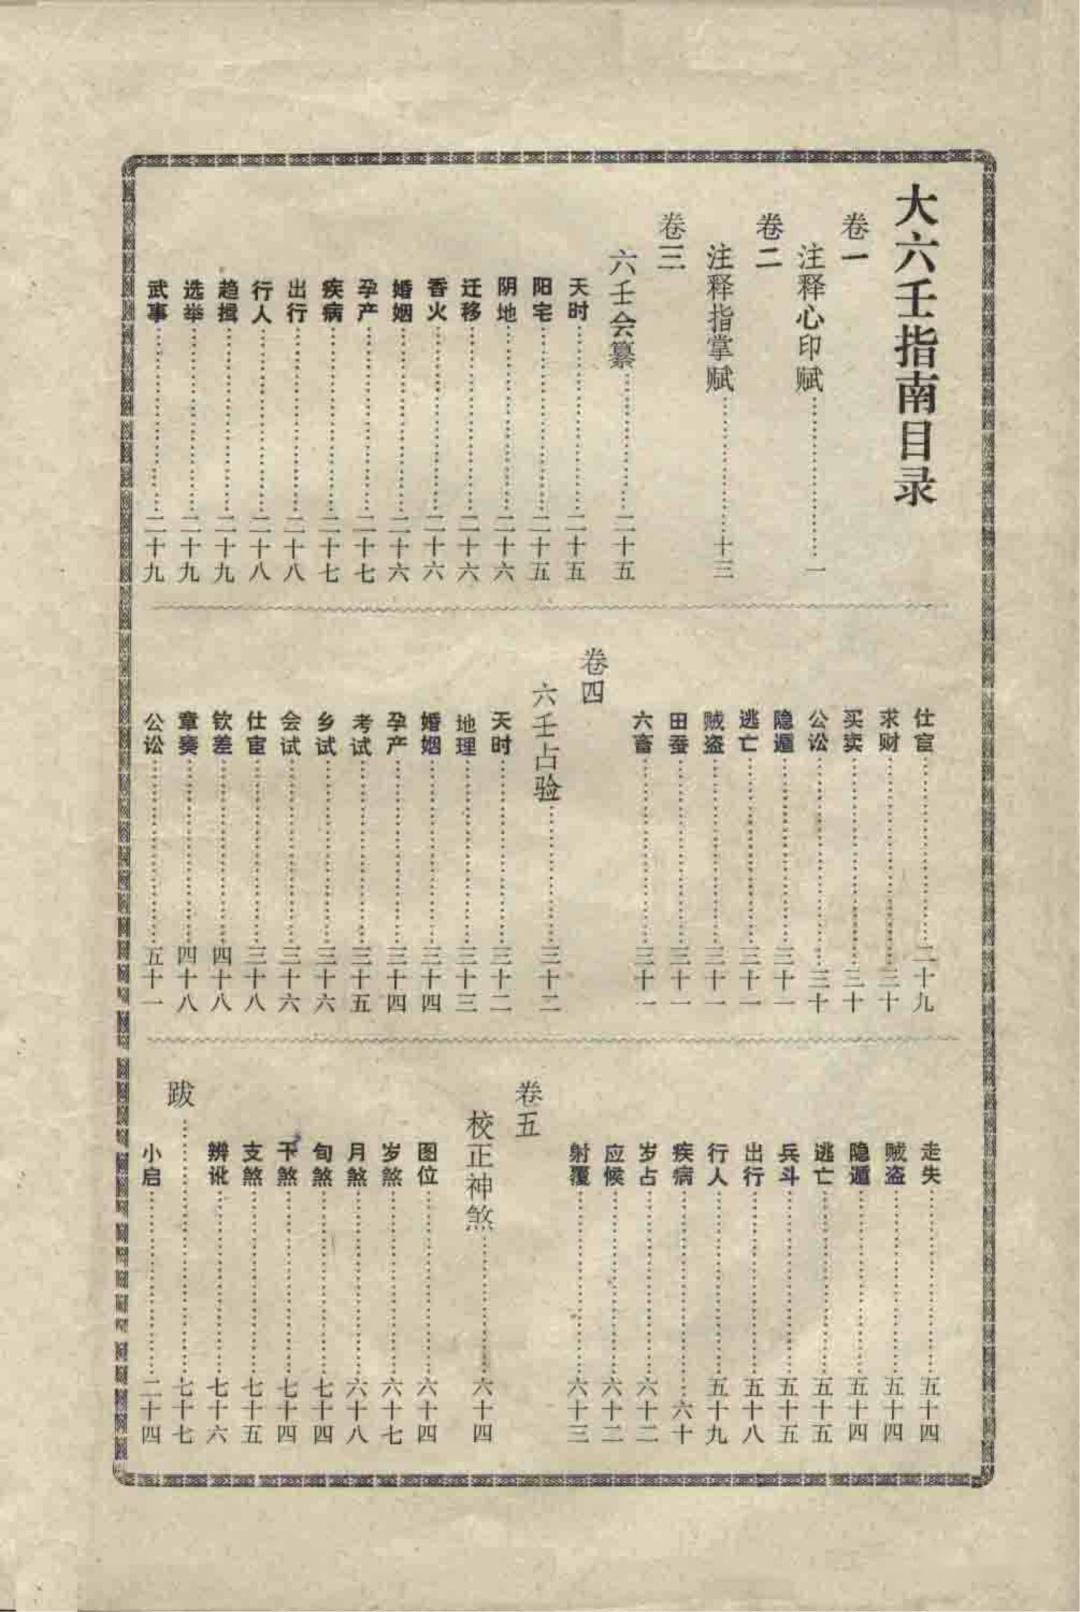 大六壬指南目录
卷一
注释心印赋……一
卷二
注释指掌赋……十三
卷三
六壬会纂……二十五
天时……二十五
阳宅……二十五
阴地……二十六
迁移……二十六
香火……二十六
婚姻……二十六
孕产……二十七
疾病……二十七
出行……二十八
行人……二十八
趋揖……二十九
选举……二十九
武事……二十九
仕宦……二十九
求财……三十
买卖……三十
公讼……三十
隐遁……三十一
逃亡……三十一
贼盗……三十一
田蚕……三十一
六畜……三十一
卷四
六壬占验……三十二
天时……三十二
地理……三十三
婚姻……三十四
孕产……三十四
考试……三十五
乡试……三十六
会试……三十六
仕宦……三十八
钦差……四十八
章奏……四十八
公讼……五十一
走失……五十四
贼盗……五十四
隐遁……五十四
逃亡……五十五
兵斗……五十五
出行……五十八
行人……五十九
疾病……六十
岁占……六十二
应候……六十二
射覆……六十三
卷五
校正神煞……六十四
图位……六十四
岁煞……六十七
月煞……六十八
旬煞……七十四
干煞……七十四
支煞……七十五
辨讹……七十六
跋……七十七
小启……二十四